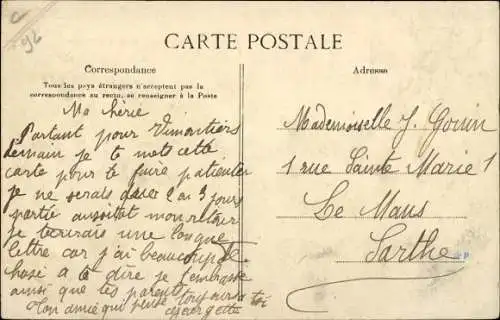 C
92
CARTE POSTALE
Correspondance
Tous les pays étrangers n'acceptent pas la
correspondance au recto, se renseigner à la Poste
Adresse
Ma chérie
Partant pour Vimoutiers
demain je te mets cette
carte pour te faire patienter
je ne serais que 2 ou 3 jours
partie aussitot mon retour
je t'ecrirais une longue
lettre car j'ai beaucoup de
chose a te dire je t'embrasse
ainsi que tes parents
Ton amie qui pense toujours a toi
Georgette
Mademoiselle J. Gouin
1 rue Sainte Marie 1
Le Mans
Sarthe